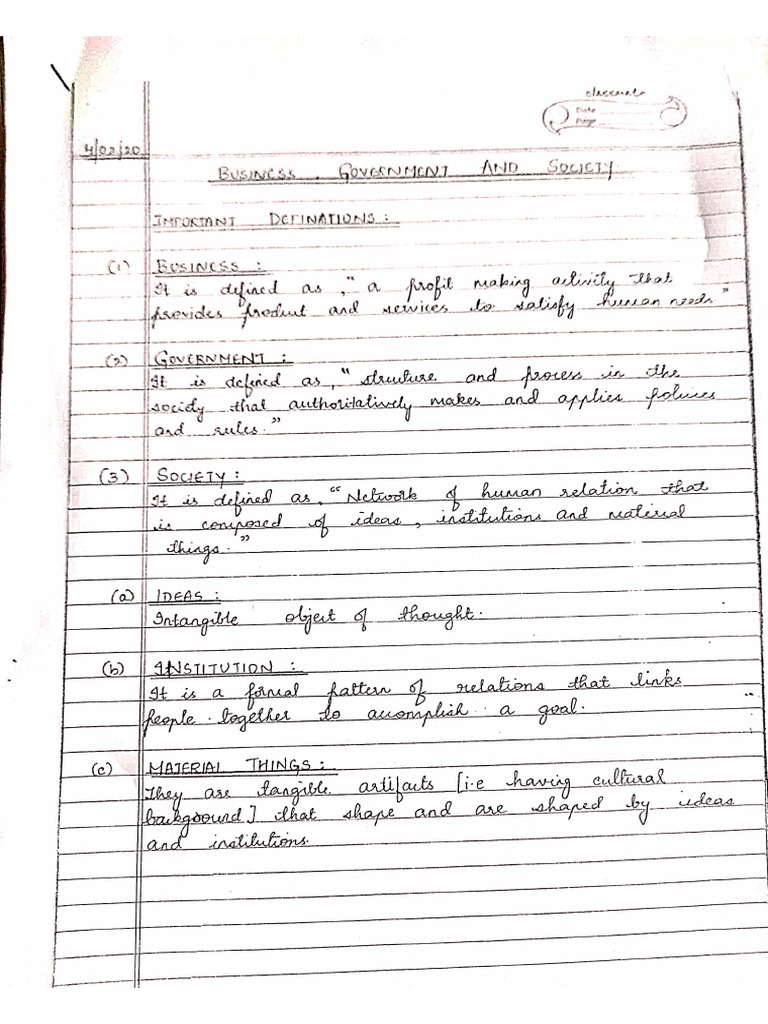 classmate
Date
Page
4/02/20
BUSINESS, GOVERNMENT AND SOCIETY
IMPORTANT DEFINATIONS :
(1) BUSINESS :
It is defined as, "a profit making activity that
provides product and services to satisfy human needs"
(2) GOVERNMENT :
It is defined as, "structure and process in the
society that authoritatively makes and applies policies
and rules."
(3) SOCIETY :
It is defined as, "Network of human relation that
is composed of ideas, institutions and material
things."
(a) IDEAS :
Intangible object of thought.
(b) INSTITUTION :
It is a formal pattern of relations that links
people together to accomplish a goal.
(c) MATERIAL THINGS :
They are tangible artifacts [i.e having cultural
background] that shape and are shaped by ideas
and institutions.